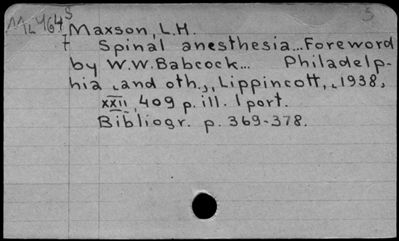 5
Maxson, L.H.
t Spinal anesthesia...Foreword
by W.W. Babcock... Philadelp-
hia ,and oth., Lippincott, 1938,
XXII, 409 p. ill. 1 port.
Bibliogr. p. 369-378.